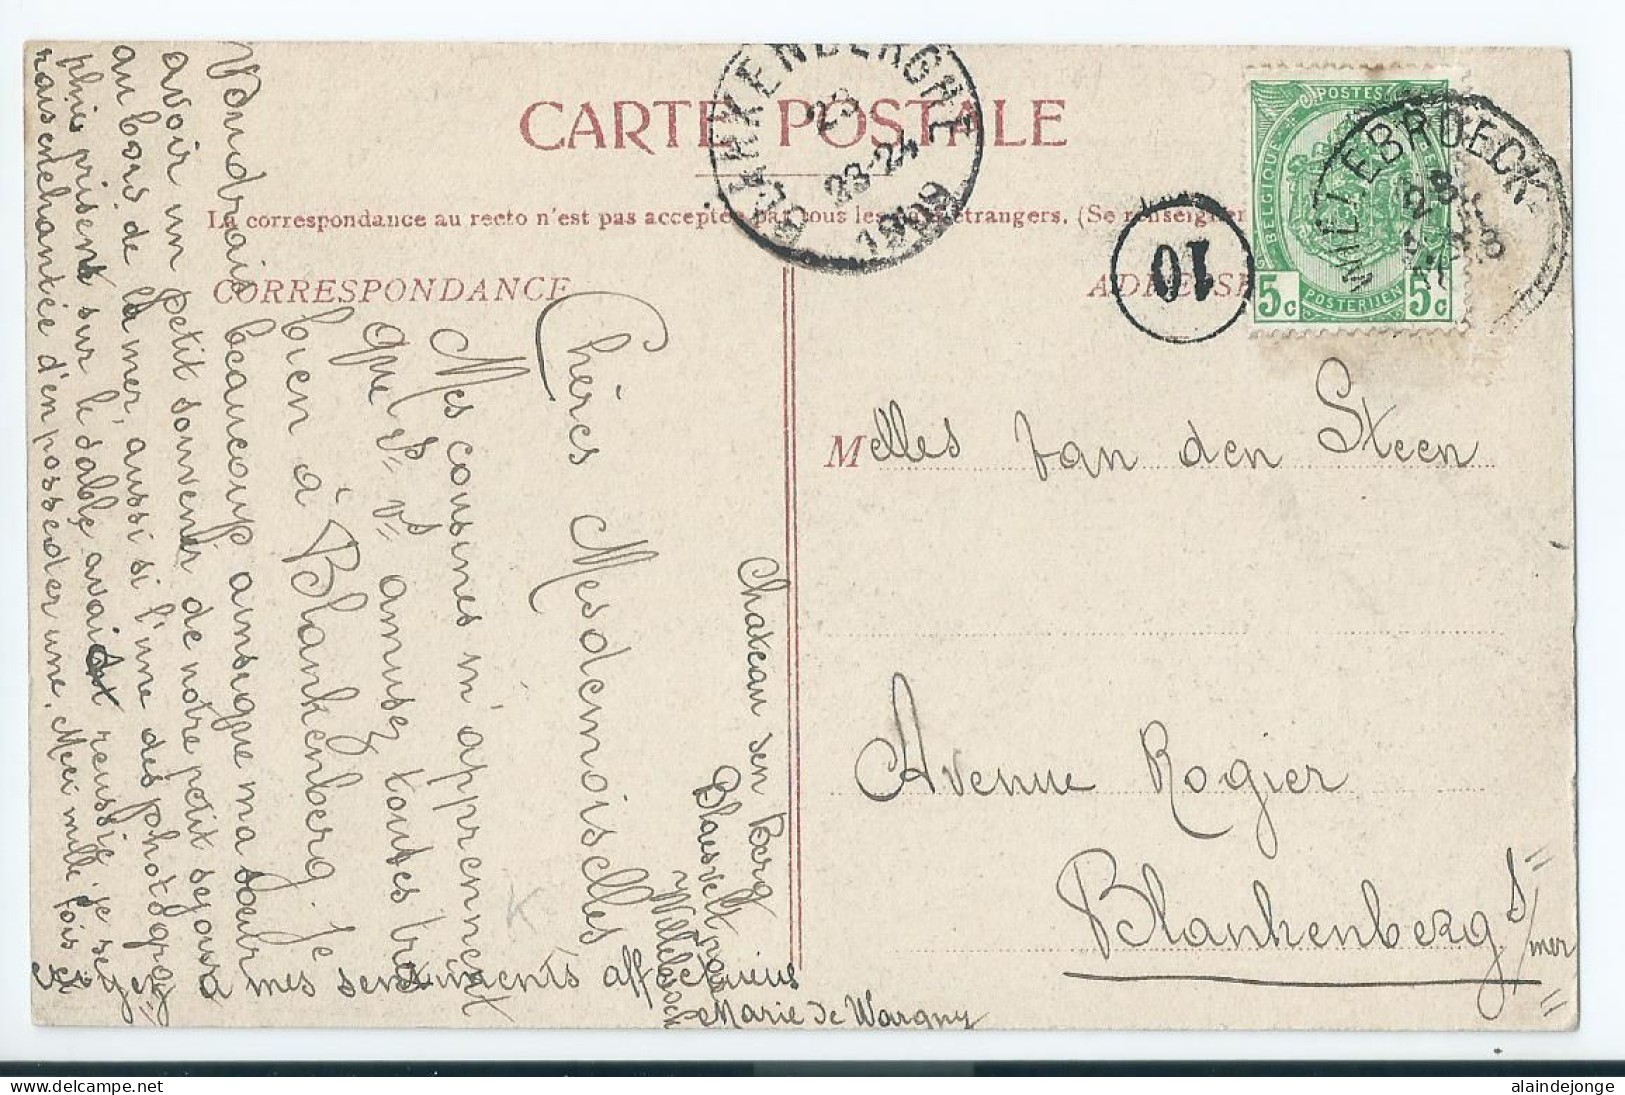 CARTE POSTALE
La correspondance au recto n'est pas acceptée par tous les pays étrangers. (Se renseigner
CORRESPONDANCE
ADRESSE
BLANKENBERGHE
23
23-24
1909
10
WILLEBROECK
POSTES
BELGIQUE
POSTERIJEN
5c 5c
Melles Van den Steen
Avenue Rogier
Blankenberg s/mer
Chateau den Berg
Blaesvelt près
Willebroeck
Chères Mesdemoiselles
Mes cousines m'apprennent
que vs vs amusez toutes très
bien à Blankenberg. Je
voudrais beaucoup ainsi que ma sœur
avoir un petit souvenir de notre petit séjour
au bord de la mer, aussi si l'une des photogra-
phies prisent sur le sable avait reussie je se-
rais enchantée d'en posseder une. Merci mille fois
et croyez à mes sentiments affectueux
Marie de Wargny
K
alaindejonge